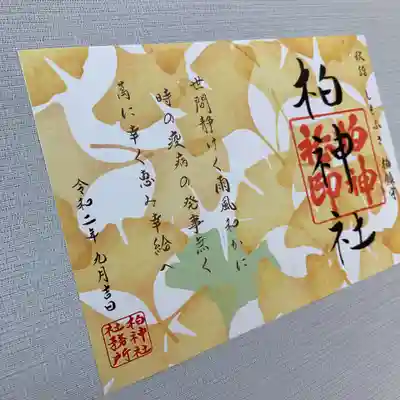 柏神社
柏神社印
世間静けく雨風和かに
時の疫病の発事無く
高に幸く恵み幸給へ
令和二年九月吉日
柏神社
社務所